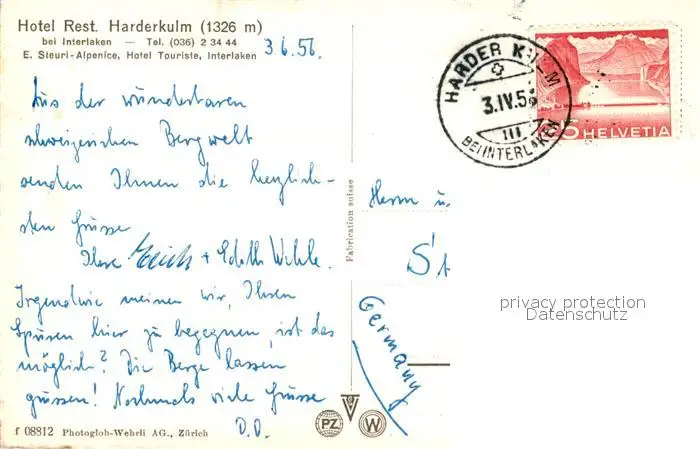 Hotel Rest. Harderkulm (1326 m)
bei Interlaken — Tel. (036) 2 34 44
E. Steuri-Alpenice, Hotel Touriste, Interlaken
3.6.56.
HARDER KULM
3.IV.56
BEI INTERLAKEN
5 HELVETIA
Aus der wunderbaren
schweizerischen Bergwelt
senden Ihnen die herzlich-
sten Grüsse
Ihre Erich + Edith Wehle.
Irgendwie meinen wir, Ihren
Spuren hier zu begegnen, ist das
möglich? Die Berge lassen
grüssen! Nochmals viele Grüsse
D.O.
Fabrication suisse
Herrn u.
St
Germany
privacy protection
Datenschutz
f 08812 Photoglob-Wehrli AG., Zürich
PZ W